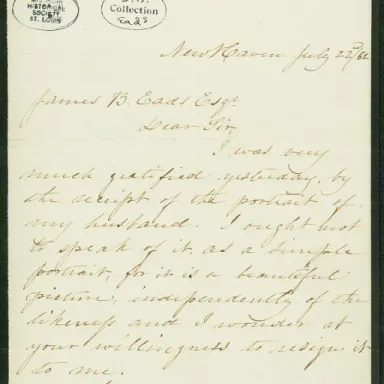 HISTORICAL
SOCIETY
ST. LOUIS
Collection
Eads
New Haven July 22d
James B. Eads Esqr.
Dear Sir,
I was very
much gratified yesterday, by
the receipt of the portrait of
my husband. I ought not
to speak of it, as a simple
portrait, for it is a beautiful
picture, independently of the
likeness and I wonder at
your willingness to resign it
to me.